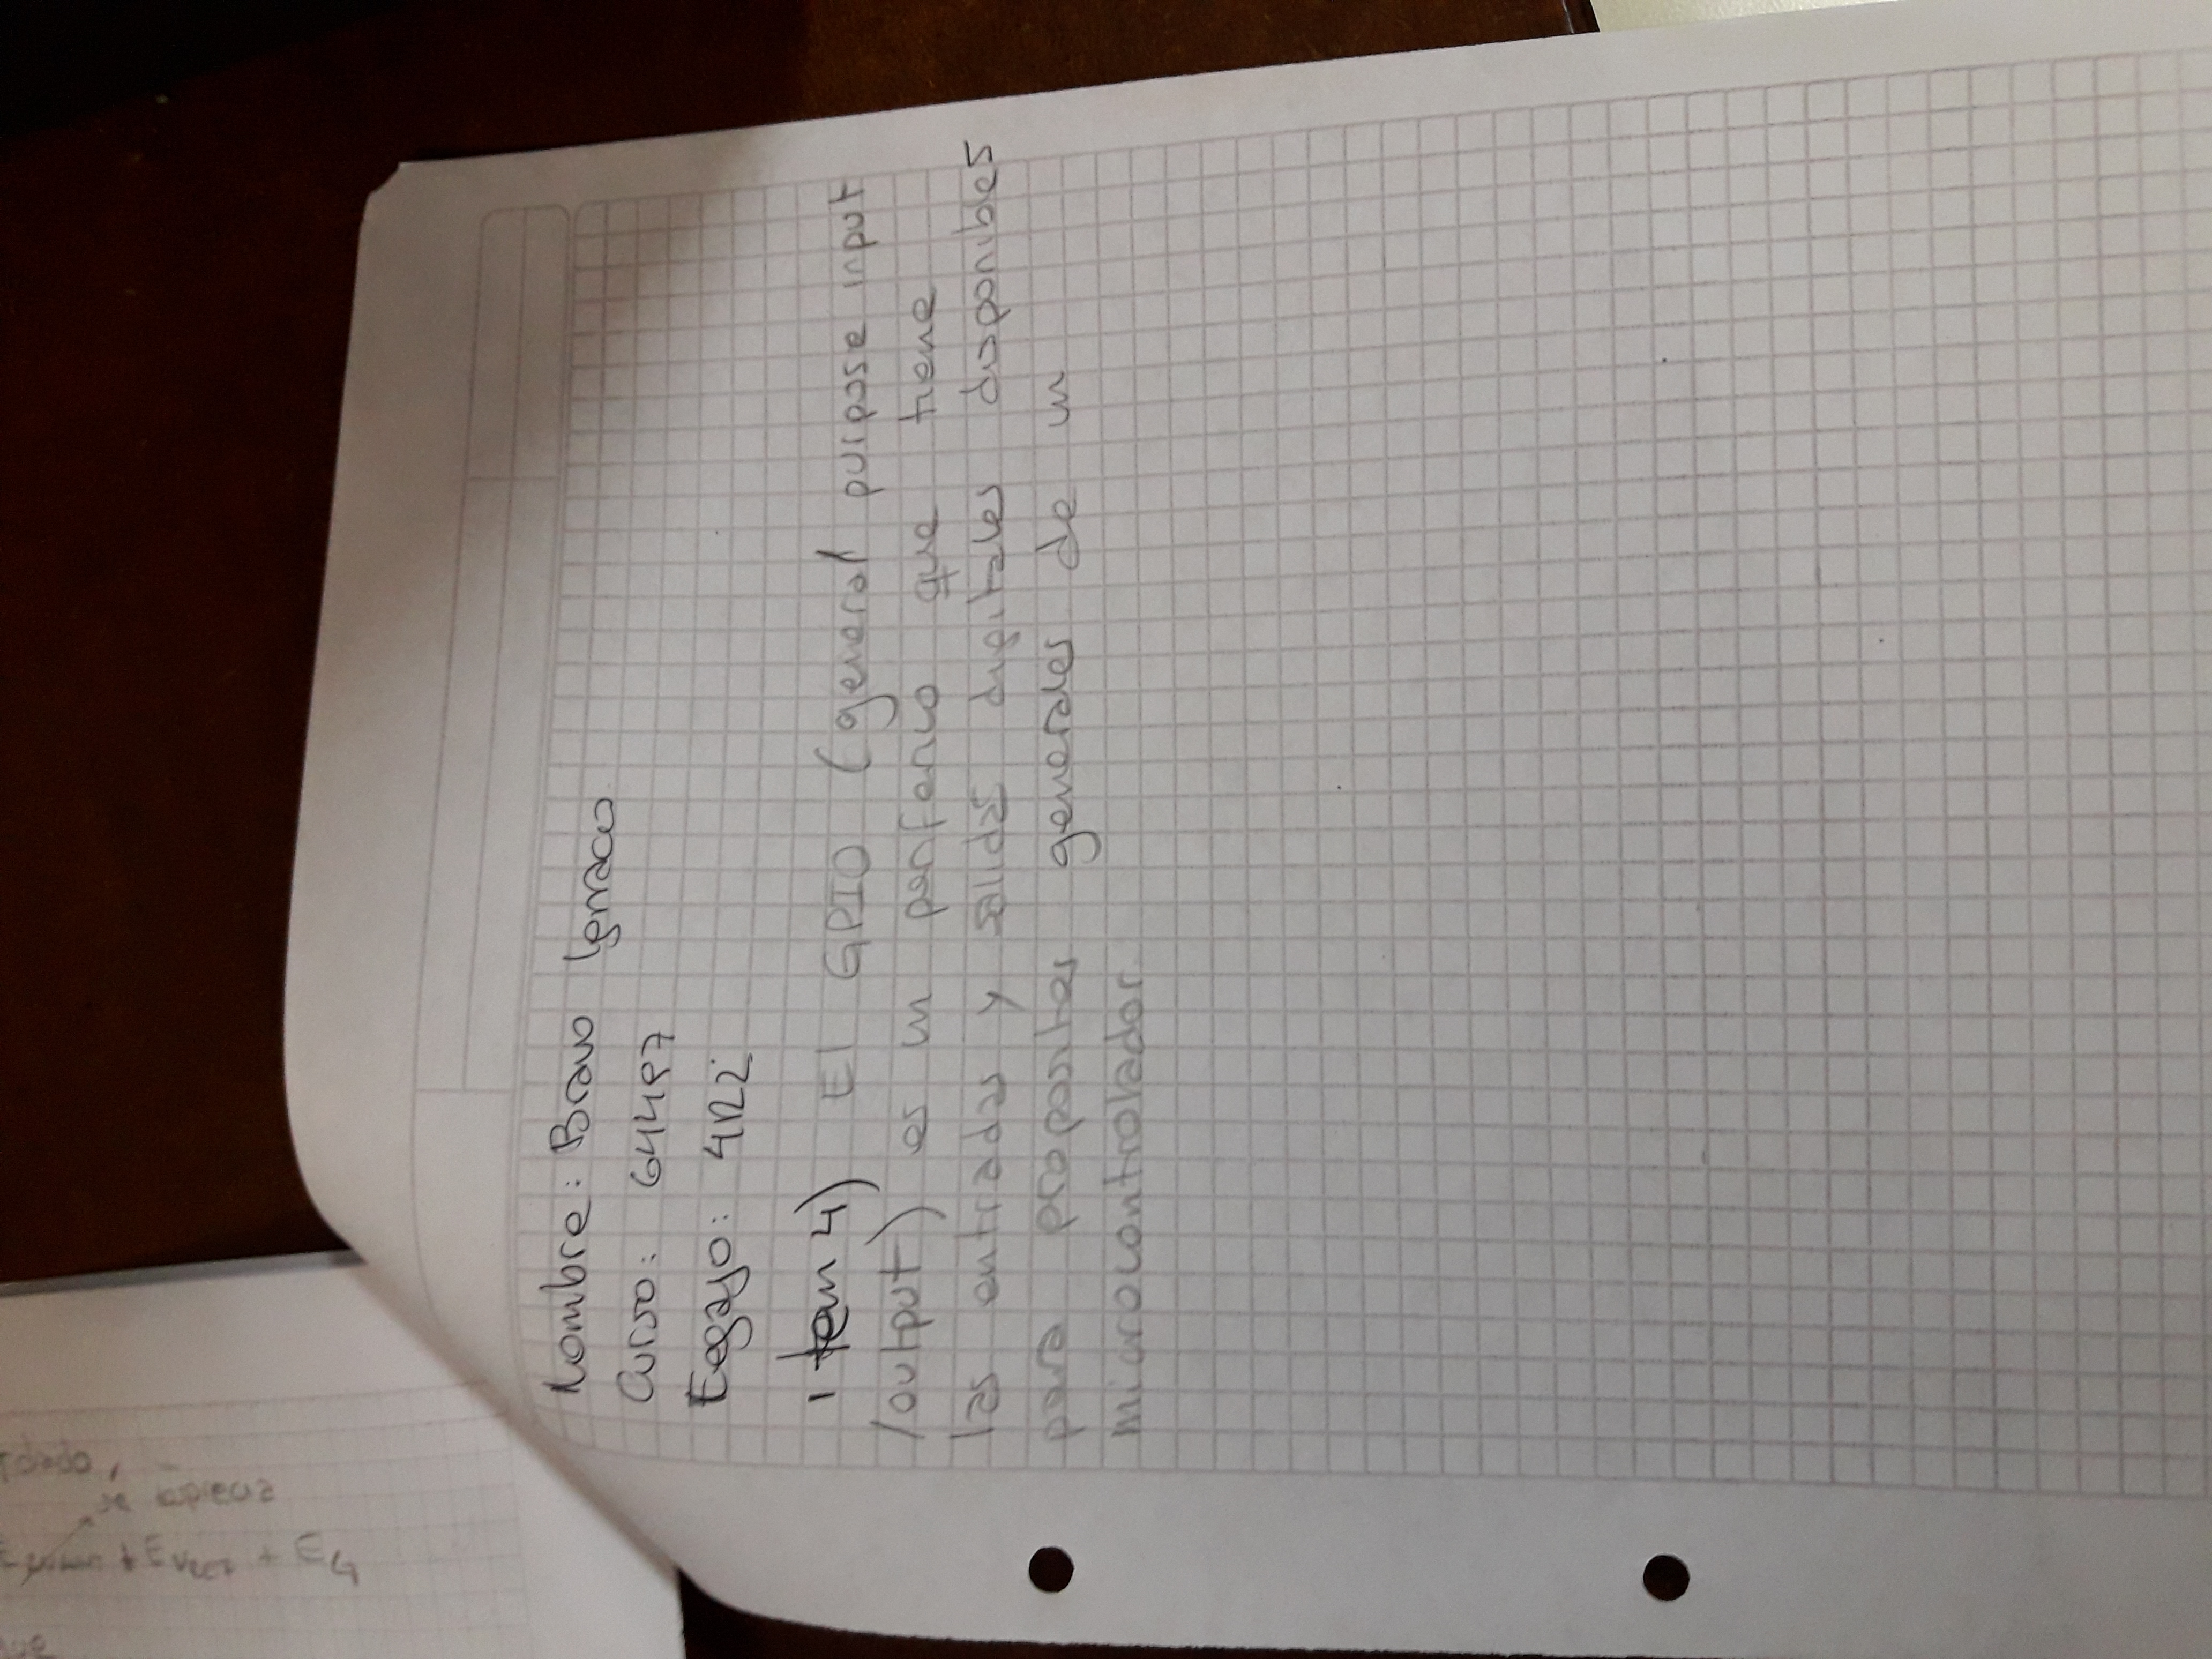 Nombre: Bravo Ignacio
Curso: 64497
Legajo: 4R2
Item 4) El GPIO (general purpose input
/output) es un periferico que tiene
las entradas y salidas digitales disponibles
para propositos generales de un
microcontrolador.
+ E